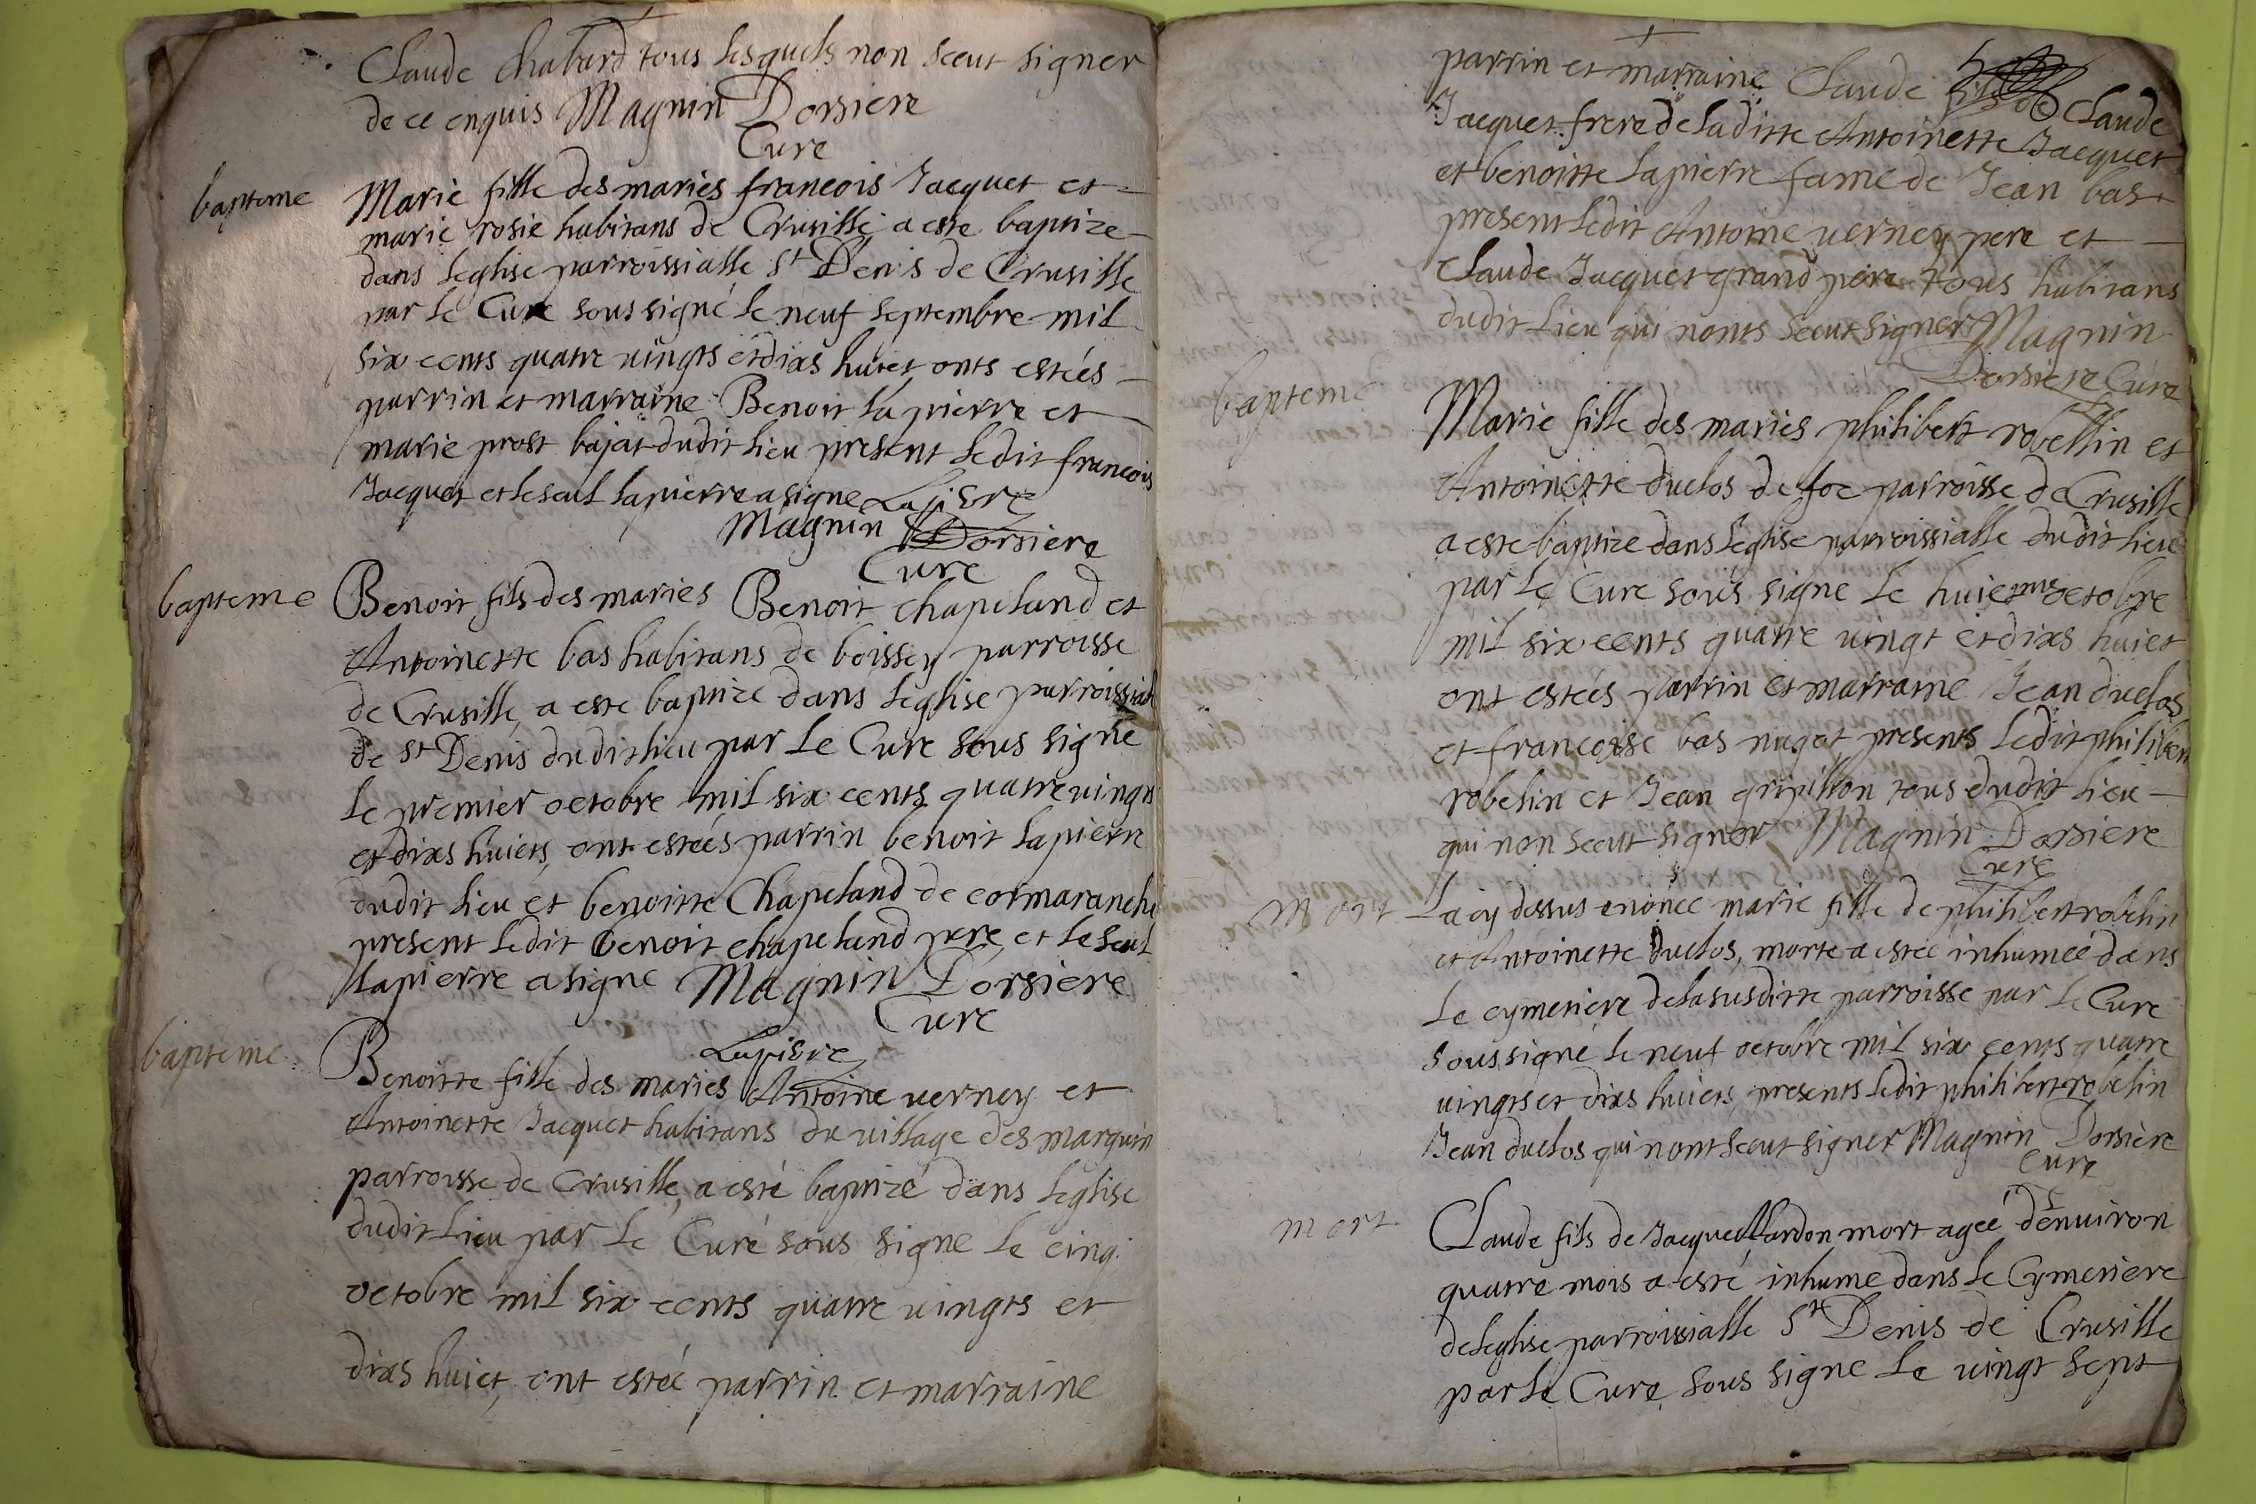 Claude chabard tous lesquels non sceut signer
de ce enquis Magnin Dorsiere
Cure
bapteme
Marie fille des maries francois Jacquet et
marie rosie habitans de Crusille a este baptize
dans leglise parroissialle St Denis de Crusille
par le Cure sous signé le neuf septembre mil
six cents quatre vingts et dixs huict onts estéés
parrin et marraine Benoit lapierre et
marie prost bajat dudit lieu present ledit francois
Jacquet et le seul lapierre a signe Lapierre
Magnin Dorsiere
Cure
bapteme
Benoit fils des maries Benoit chapeland et
Antoinette bas habitans de boissey parroisse
de Crusille, a este baptize dans leglise parroissialle
de St Denis dudit lieu par le Cure sous signe
le premier octobre mil six cents quatre vingts
et dixs huicts, ont estéés parrin benoit lapierre
dudit lieu et benoitte Chapeland de cormaranche
present ledit benoit chapeland pere et le seul
lapierre a signe Magnin Dorsiere
Cure
Lapierre
bapteme
Benoitte fille des maries Antoine verney et
Antoinette Jacquet habitans du village des marquin
parroisse de Crusille, a esté baptizé dans leglise
dudit lieu par le Curé sous signé le cinq
octobre mil six cents quatre vingts et
dixs huict, ont estéé parrin et marraine
parrin et marraine Claude
fils de Claude
Jacquet frere de la ditte Antoinette Jacquet
et benoitte lapierre fame de Jean bas
present ledit Antoine verney pere et
Claude Jacquet grand pere tous habitans
dudit lieu qui nonts sceut signer Magnin
Dorsiere Cure
bapteme
Marie fille des mariés philibert robellin et
Antoinette duclos de foc parroisse de Crusille
a este baptize dans leglise parroissialle dudit lieu
par le Cure sous signe le huictme octobre
mil six cents quatre vingt et dixs huict
ont estéés parrin et marraine Jean duclos
et francoise bas nugat presents ledit philibert
robelin et Jean gripillon tous dudit lieu
qui non sceut signer Magnin Dorsiere
Cure
mort
La cy dessus enoncé marie fille de philibert robelin
et Antoinette duclos, morte a estéé inhumeé dans
le cymetiere de la susditte parroisse par le Cure
sous signé le neuf octobre mil six cents quatre
vingts et dixs huicts presents ledit philibert robelin
Jean duclos qui nont sceut signer Magnin Dorsiere
Cure
mort
Claude fils de Jacques lardon mort ageé denuiron
quatre mois a esté inhume dans le Cymetiere
de leglise parroissialle St Denis de Crusille
par le Cure sous signe le vingt sept